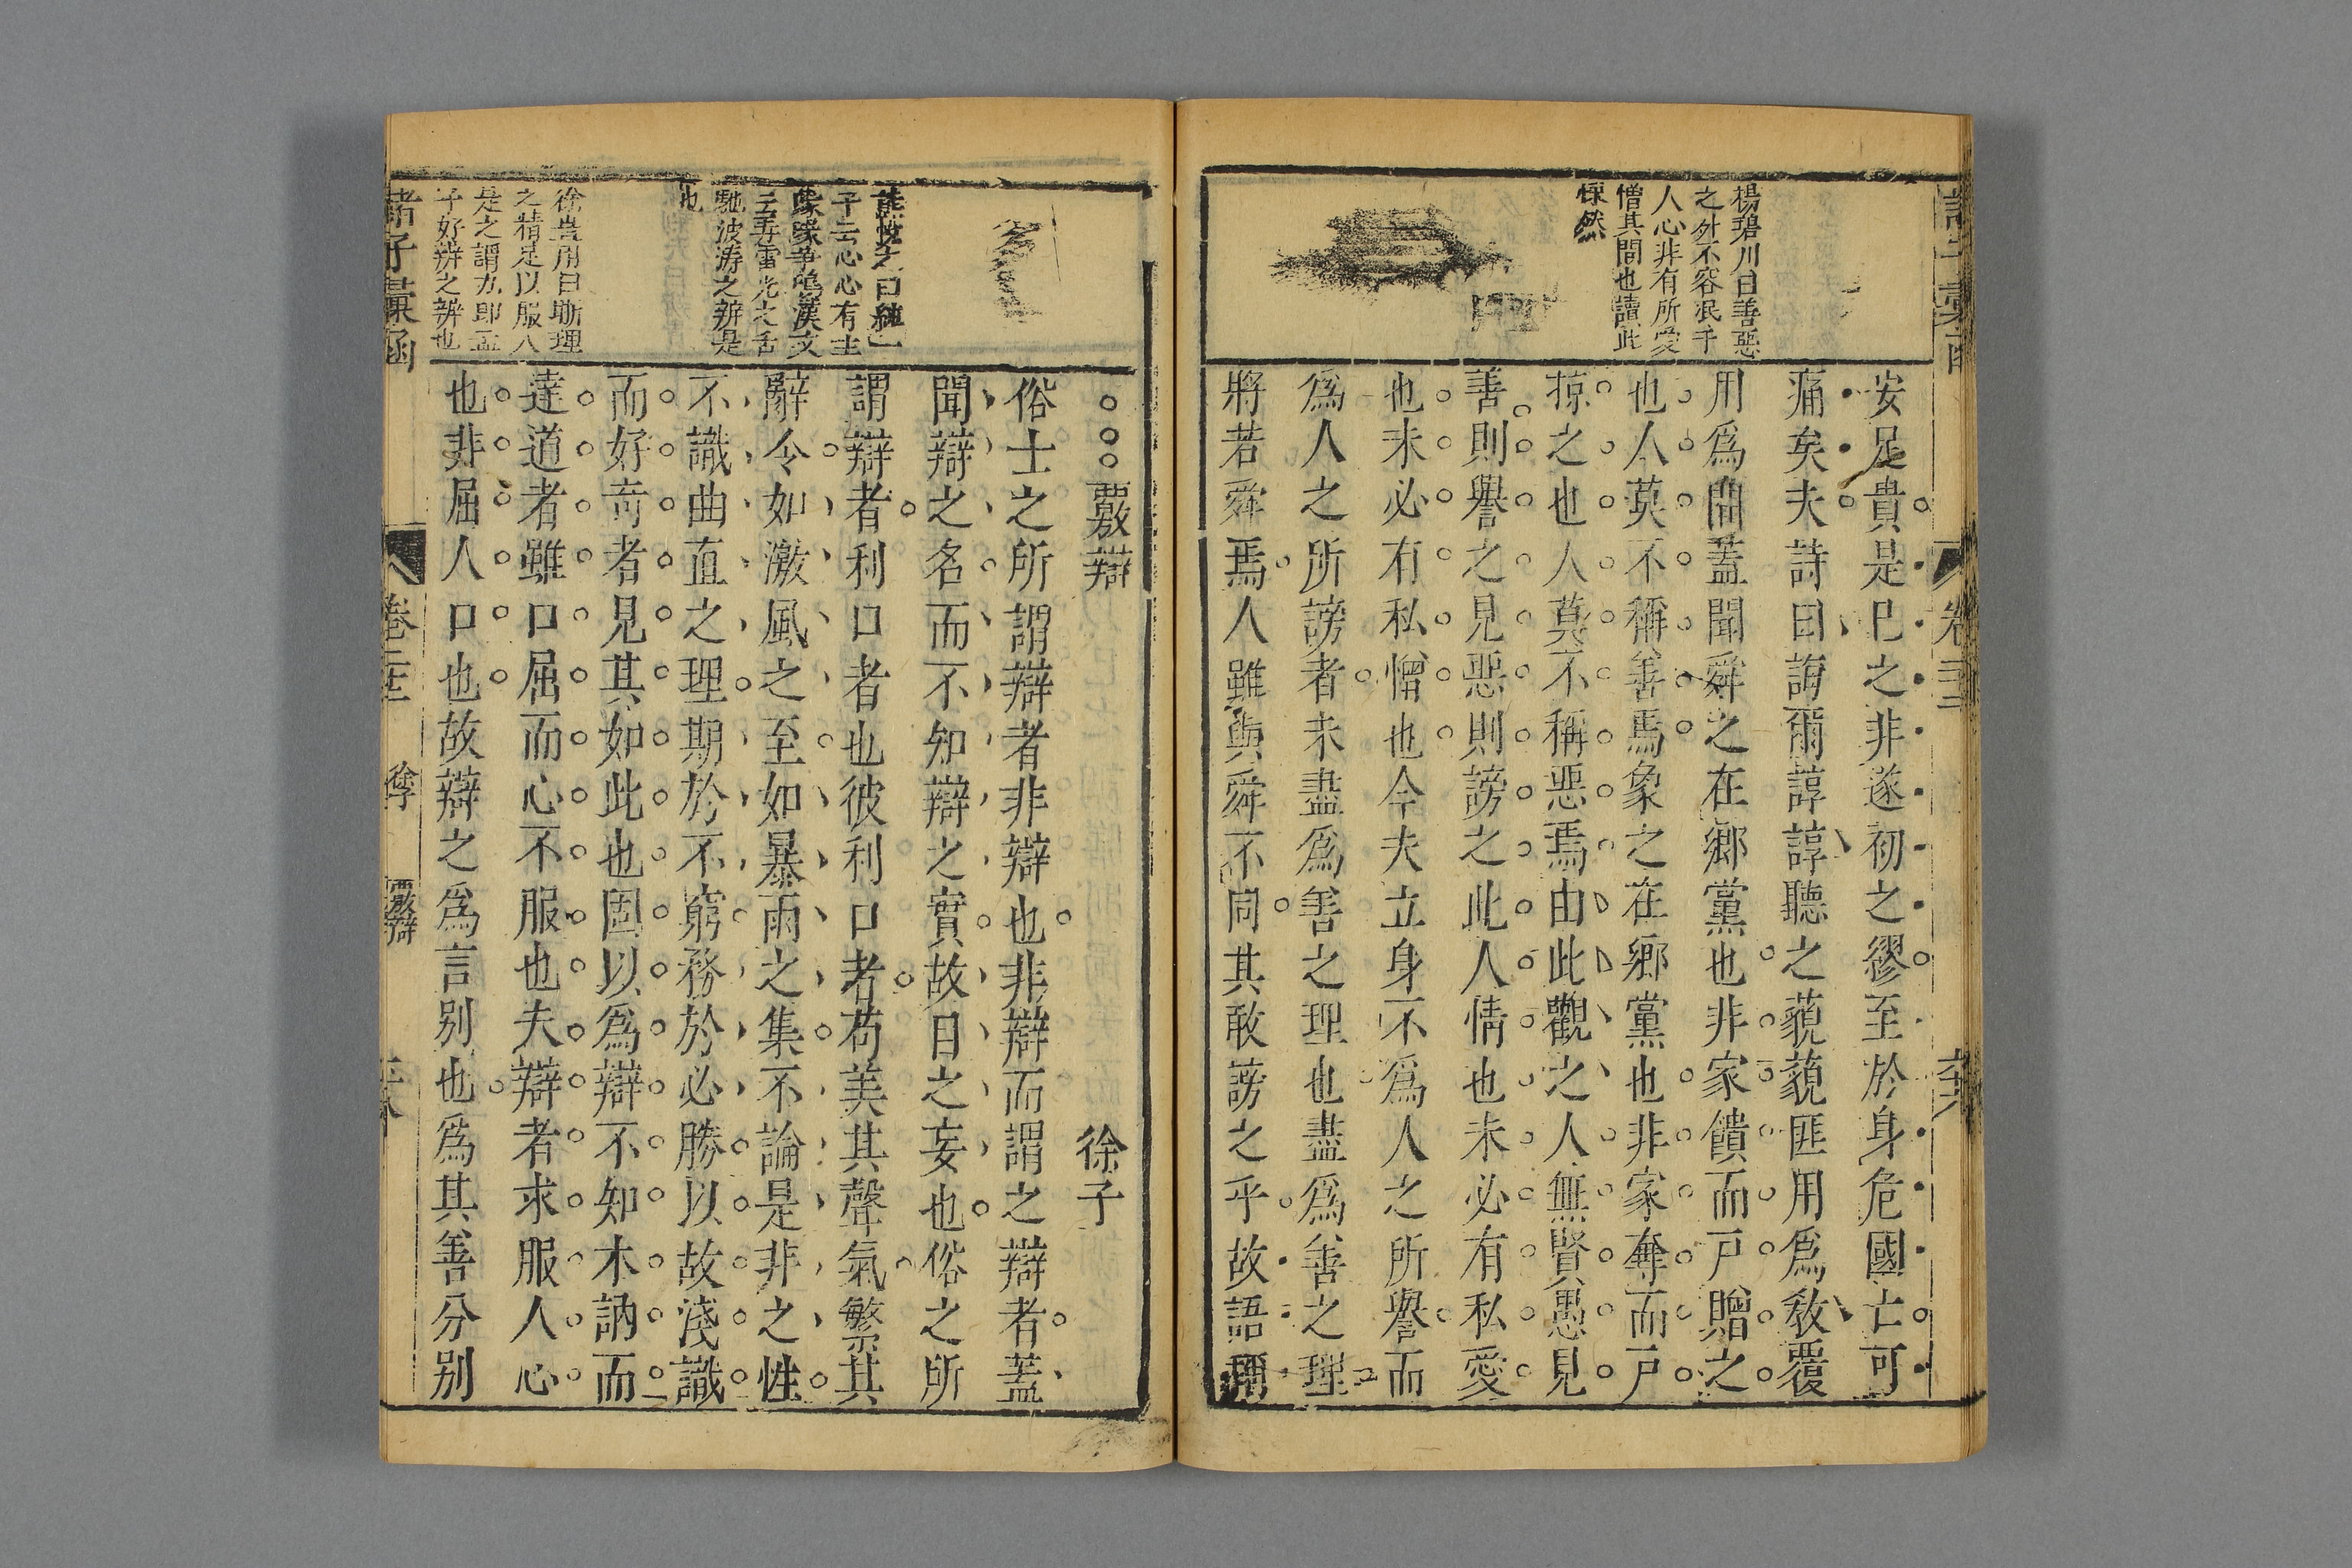 楊碧川曰善惡
之外不容泯乎
人心非有所愛
憎其間也讀此
悚然
安足貴是巳之非遂初之繆至於身危國亡可
痛矣夫詩曰誨爾諄諄聽之藐藐匪用爲敎覆
用爲閒蓋聞舜之在鄉黨也非家饋而戸贈之
也人莫不稱善焉象之在鄉黨也非家奪而戸
掠之也人莫不稱惡焉由此觀之人無賢愚見
善則譽之見惡則謗之此人情也未必有私愛
也未必有私憎也今夫立身不爲人之所譽而
爲人之所謗者未盡爲善之理也盡爲善之理
將若舜焉人雖與舜不同其敢謗之乎故語稱
卷
覈辯
徐子
子去心心有主
馳波涛之辨是
也
徐 曰斯理
之精足以服人
是之謂 即孟
子好辨之辨也
俗士之所謂辯者非辯也非辯而謂之辯者蓋
聞辯之名而不知辯之實故目之妄也俗之所
謂辯者利口者也彼利口者苟美其聲氣繁其
辭令如激風之至如暴雨之集不論是非之性
不識曲直之理期於不窮務於必勝以故淺識
而好竒者見其如此也固以爲辯不知木訥而
達道者雖口屈而心不服也夫辯者求服人心
也非屈人口也故辯之爲言别也爲其善分别
諸子彙函
卷
徐子
覈辯